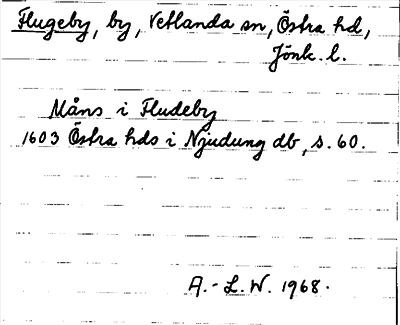 Flugeby, by, Vetlanda sn, Östra hd,
Jönk. l.
Måns i Fludeby
1603 Östra hds i Njudung db, s. 60.
A.-L.W. 1968.